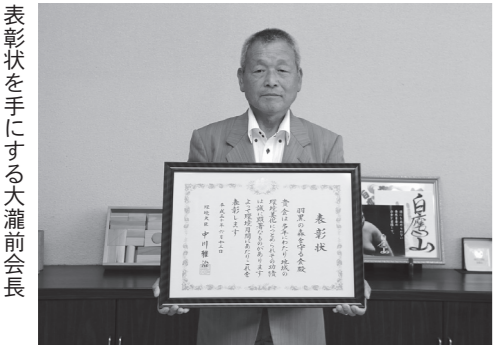 表彰状を手にする大瀧前会長
表彰状
羽黒の森を守る会殿
貴会は多年にわたり地域の
環境美化につとめられその功績
は誠に顕著なものがあります
よって環境月間にあたりこれを
表彰します
平成三十年六月
環境大臣 中川雅治